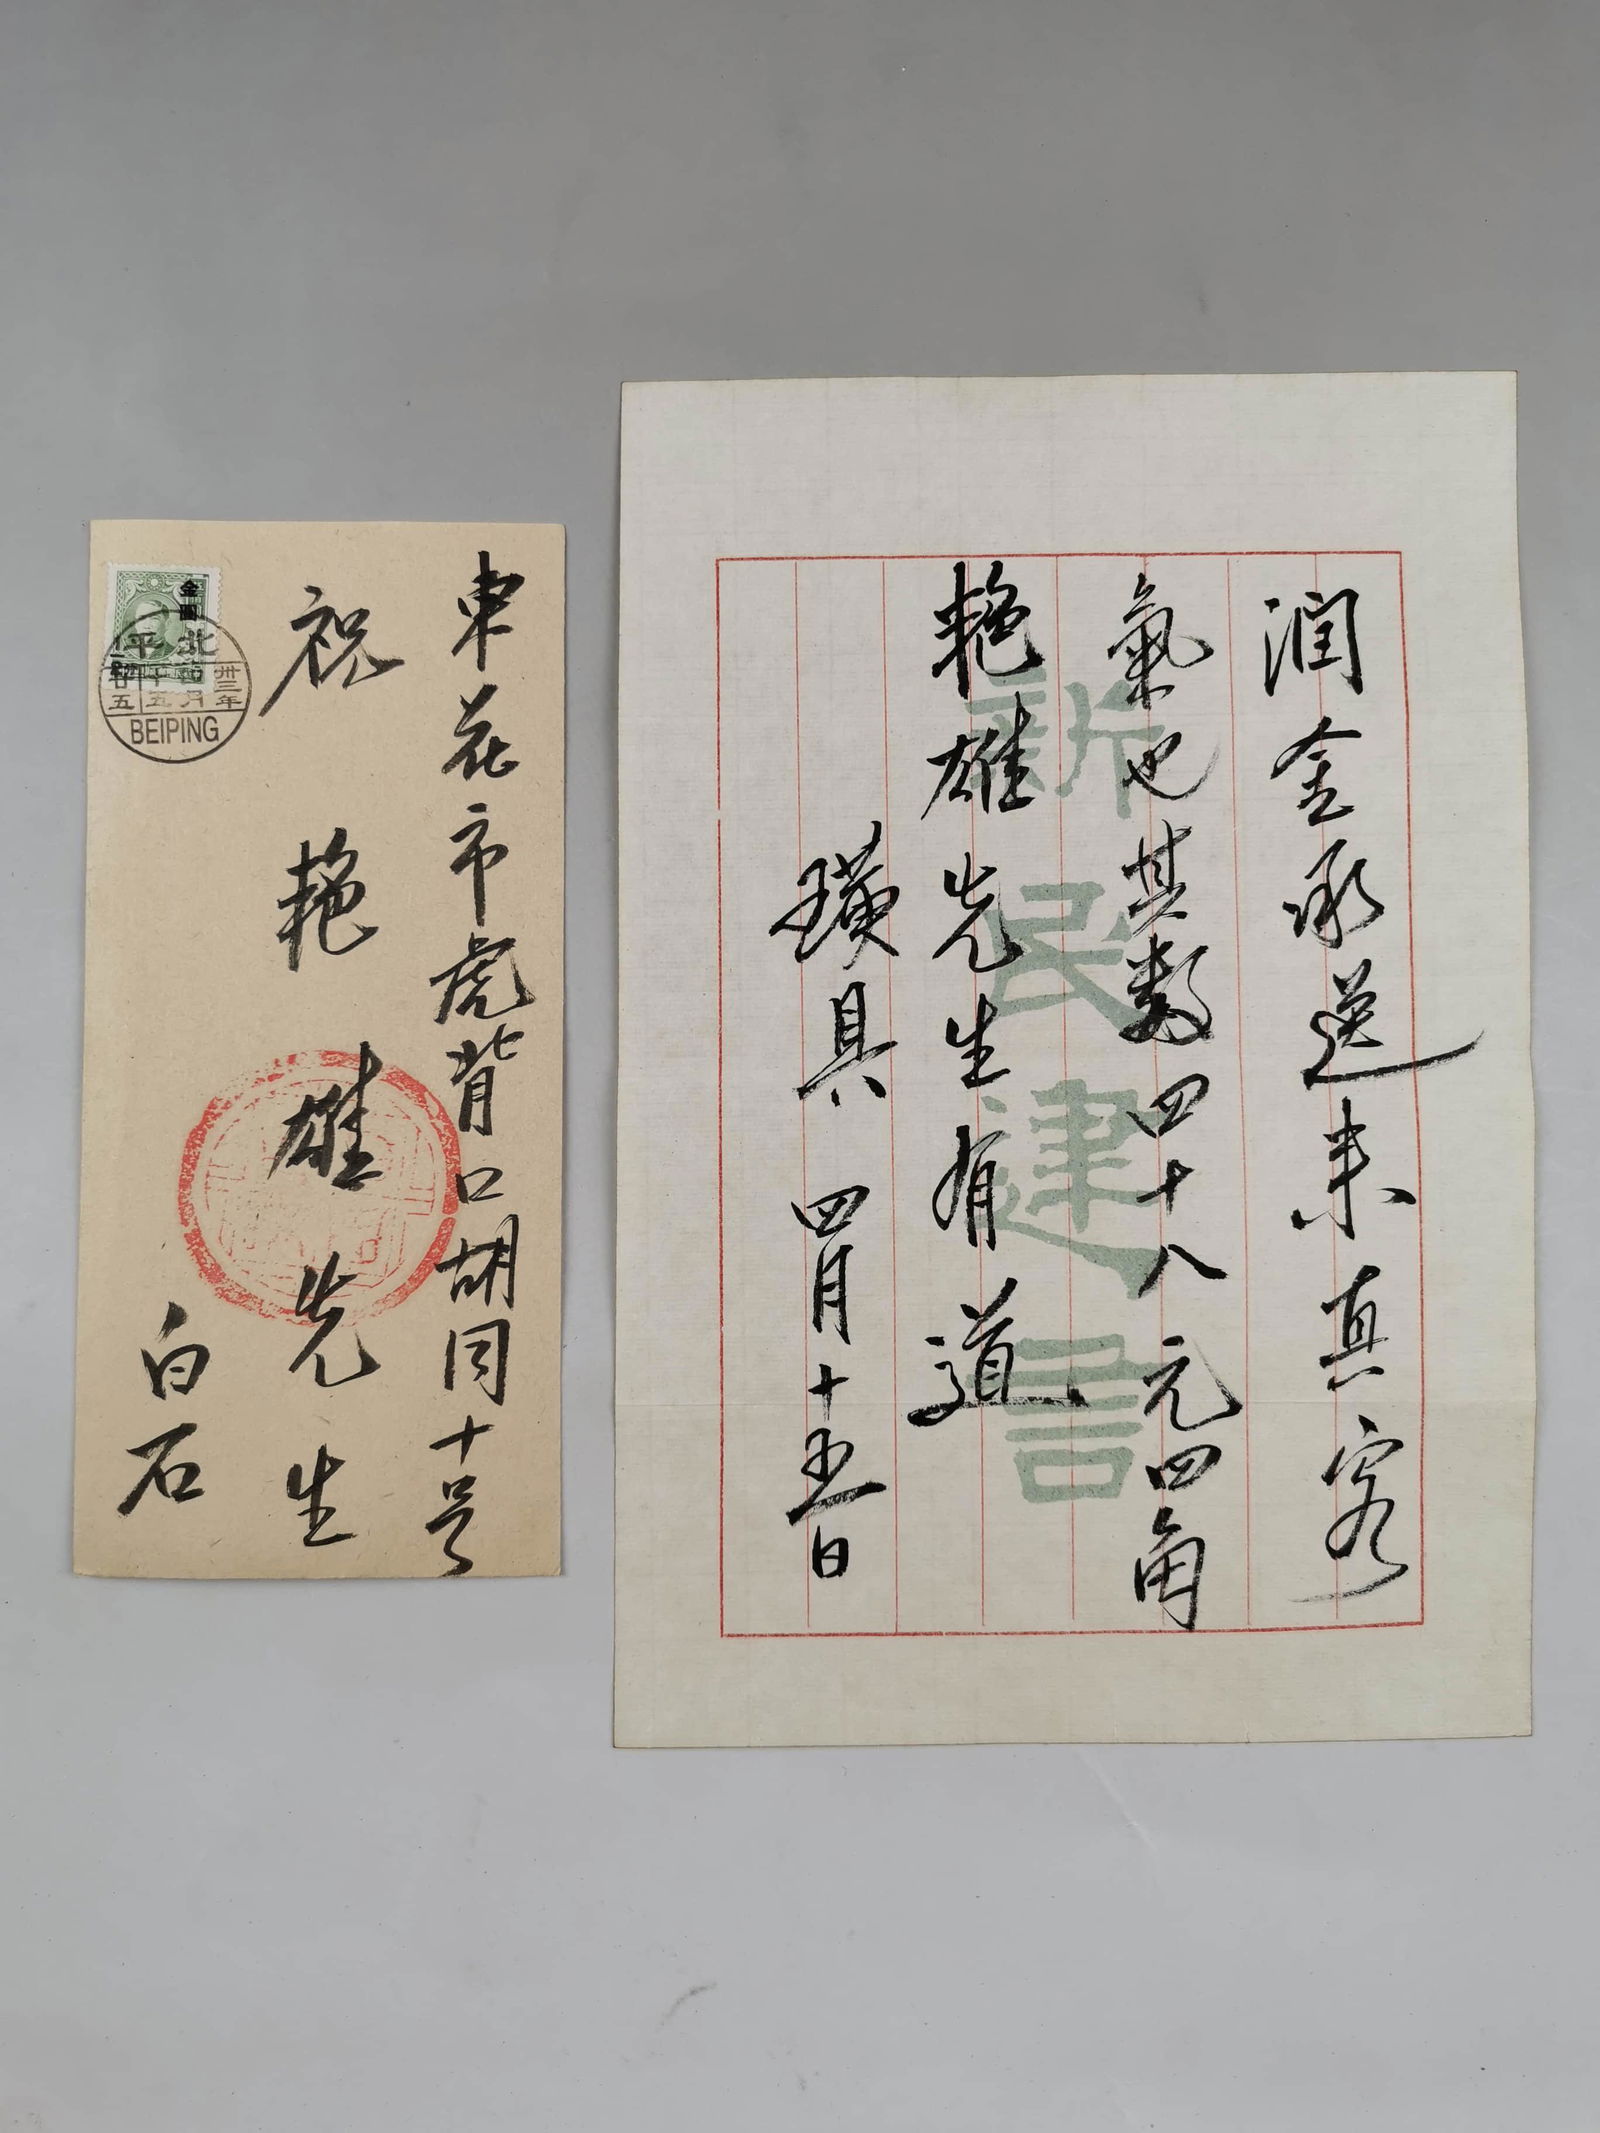 東花市虎背口胡同十号
祝艳雄先生
白石
金圓
北平
卅三年
十五
廿五
BEIPING
润金承送来真客
氣也其数四十八元四角
艳雄先生有道
璜具 四月十五日
新民建言